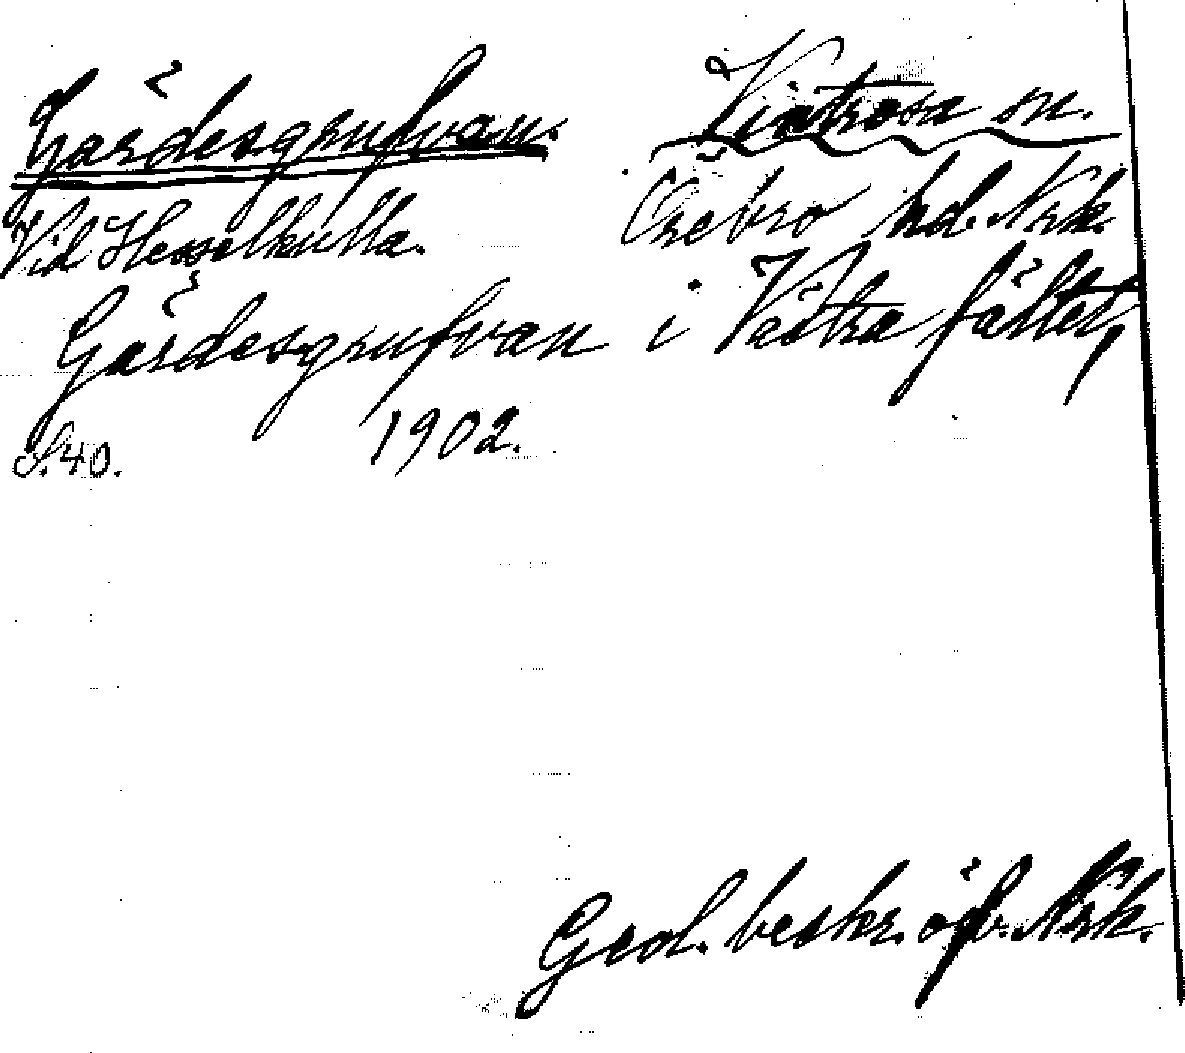 Gärdesgrufvan. Vintrosa sn.
Vid Hesselkulla. Örebro hd. Nrk.
Gärdesgrufvan i Västra fältet,
S. 40. 1902.
Geol. beskr. öfv. Nrk.